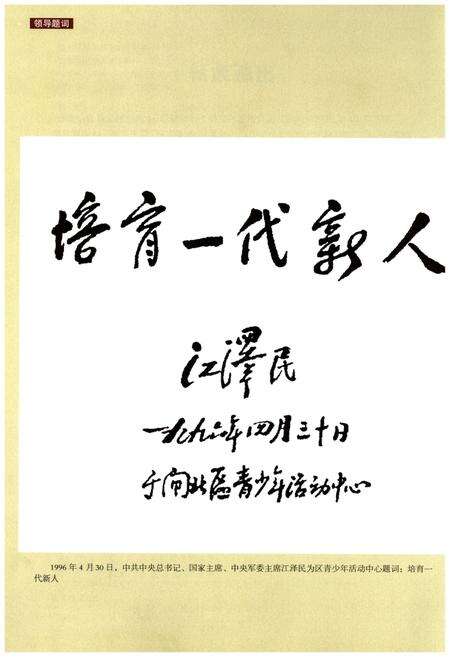 领导题词
培育一代新人
江泽民
一九九六年四月三十日
于闸北區青少年活动中心
1996年4月30日，中共中央总书记、国家主席、中央军委主席江泽民为区青少年活动中心题词：培育一
代新人